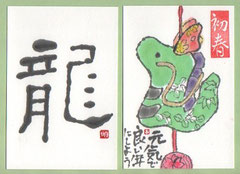 龍
初春
元気で
良い年
にしよう